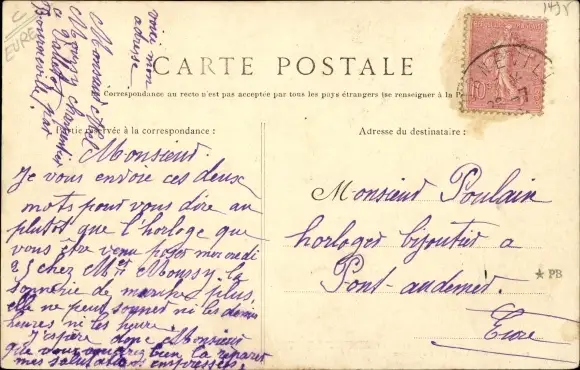 voici mon
adresse
Monsieur Abel
Moussy charpentier
à Valletot
Bourneville, par
EURE
CARTE POSTALE
Correspondance au recto n'est pas acceptée par tous les pays étrangers (se renseigner à la P
Partie réservée à la correspondance :
Monsieur
Je vous envoie ces deux
mots pour vous dire au
plutot que l'horloge que
vous être venu poser mercredi
25 chez Mr Moussy la
sonnerie ne marche plus,
elle ne peut sonner ni les demies
heures ni les heure.
J'espère donc Monsieur
que vous voudrez bien la réparer
mes salutations empressées.
Adresse du destinataire :
Monsieur Poulain
horloger bijoutier a
Pont-audemer.
Eure
★ PB
10